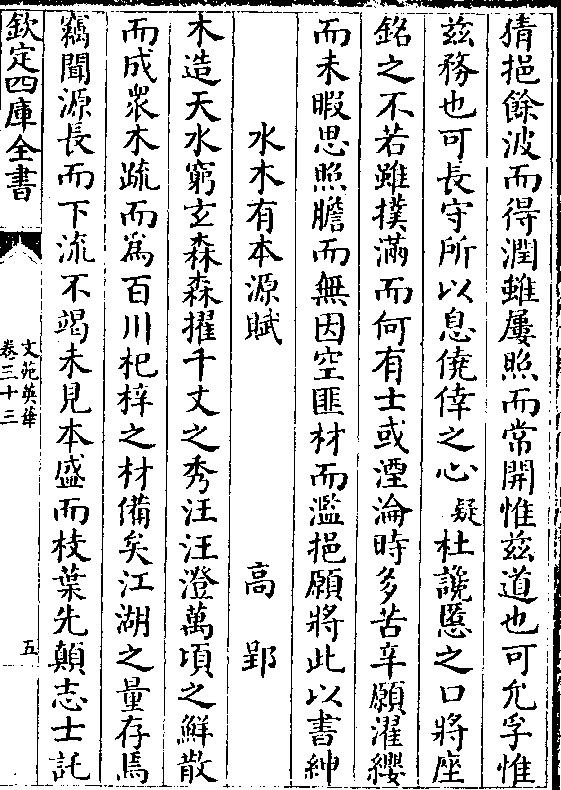 猜挹餘波而得潤雖屢照而常開惟兹道也可允孚惟
兹務也可長守所以息僥倖之心疑杜讒慝之口將座
銘之不若雖撲滿而何有士或湮淪時多苦辛願濯纓
而未暇思照膽而無因空匪材而濫挹願將此以書紳
水木有本源賦 高郢
木造天水窮玄森森擢千丈之秀汪汪澄萬頃之鮮散
而成衆木疏而爲百川杞梓之材備矣江湖之量存焉
竊聞源長而下流不竭未見本盛而枝葉先顛志士託
欽定四庫全書
文苑英華
卷三十三
五